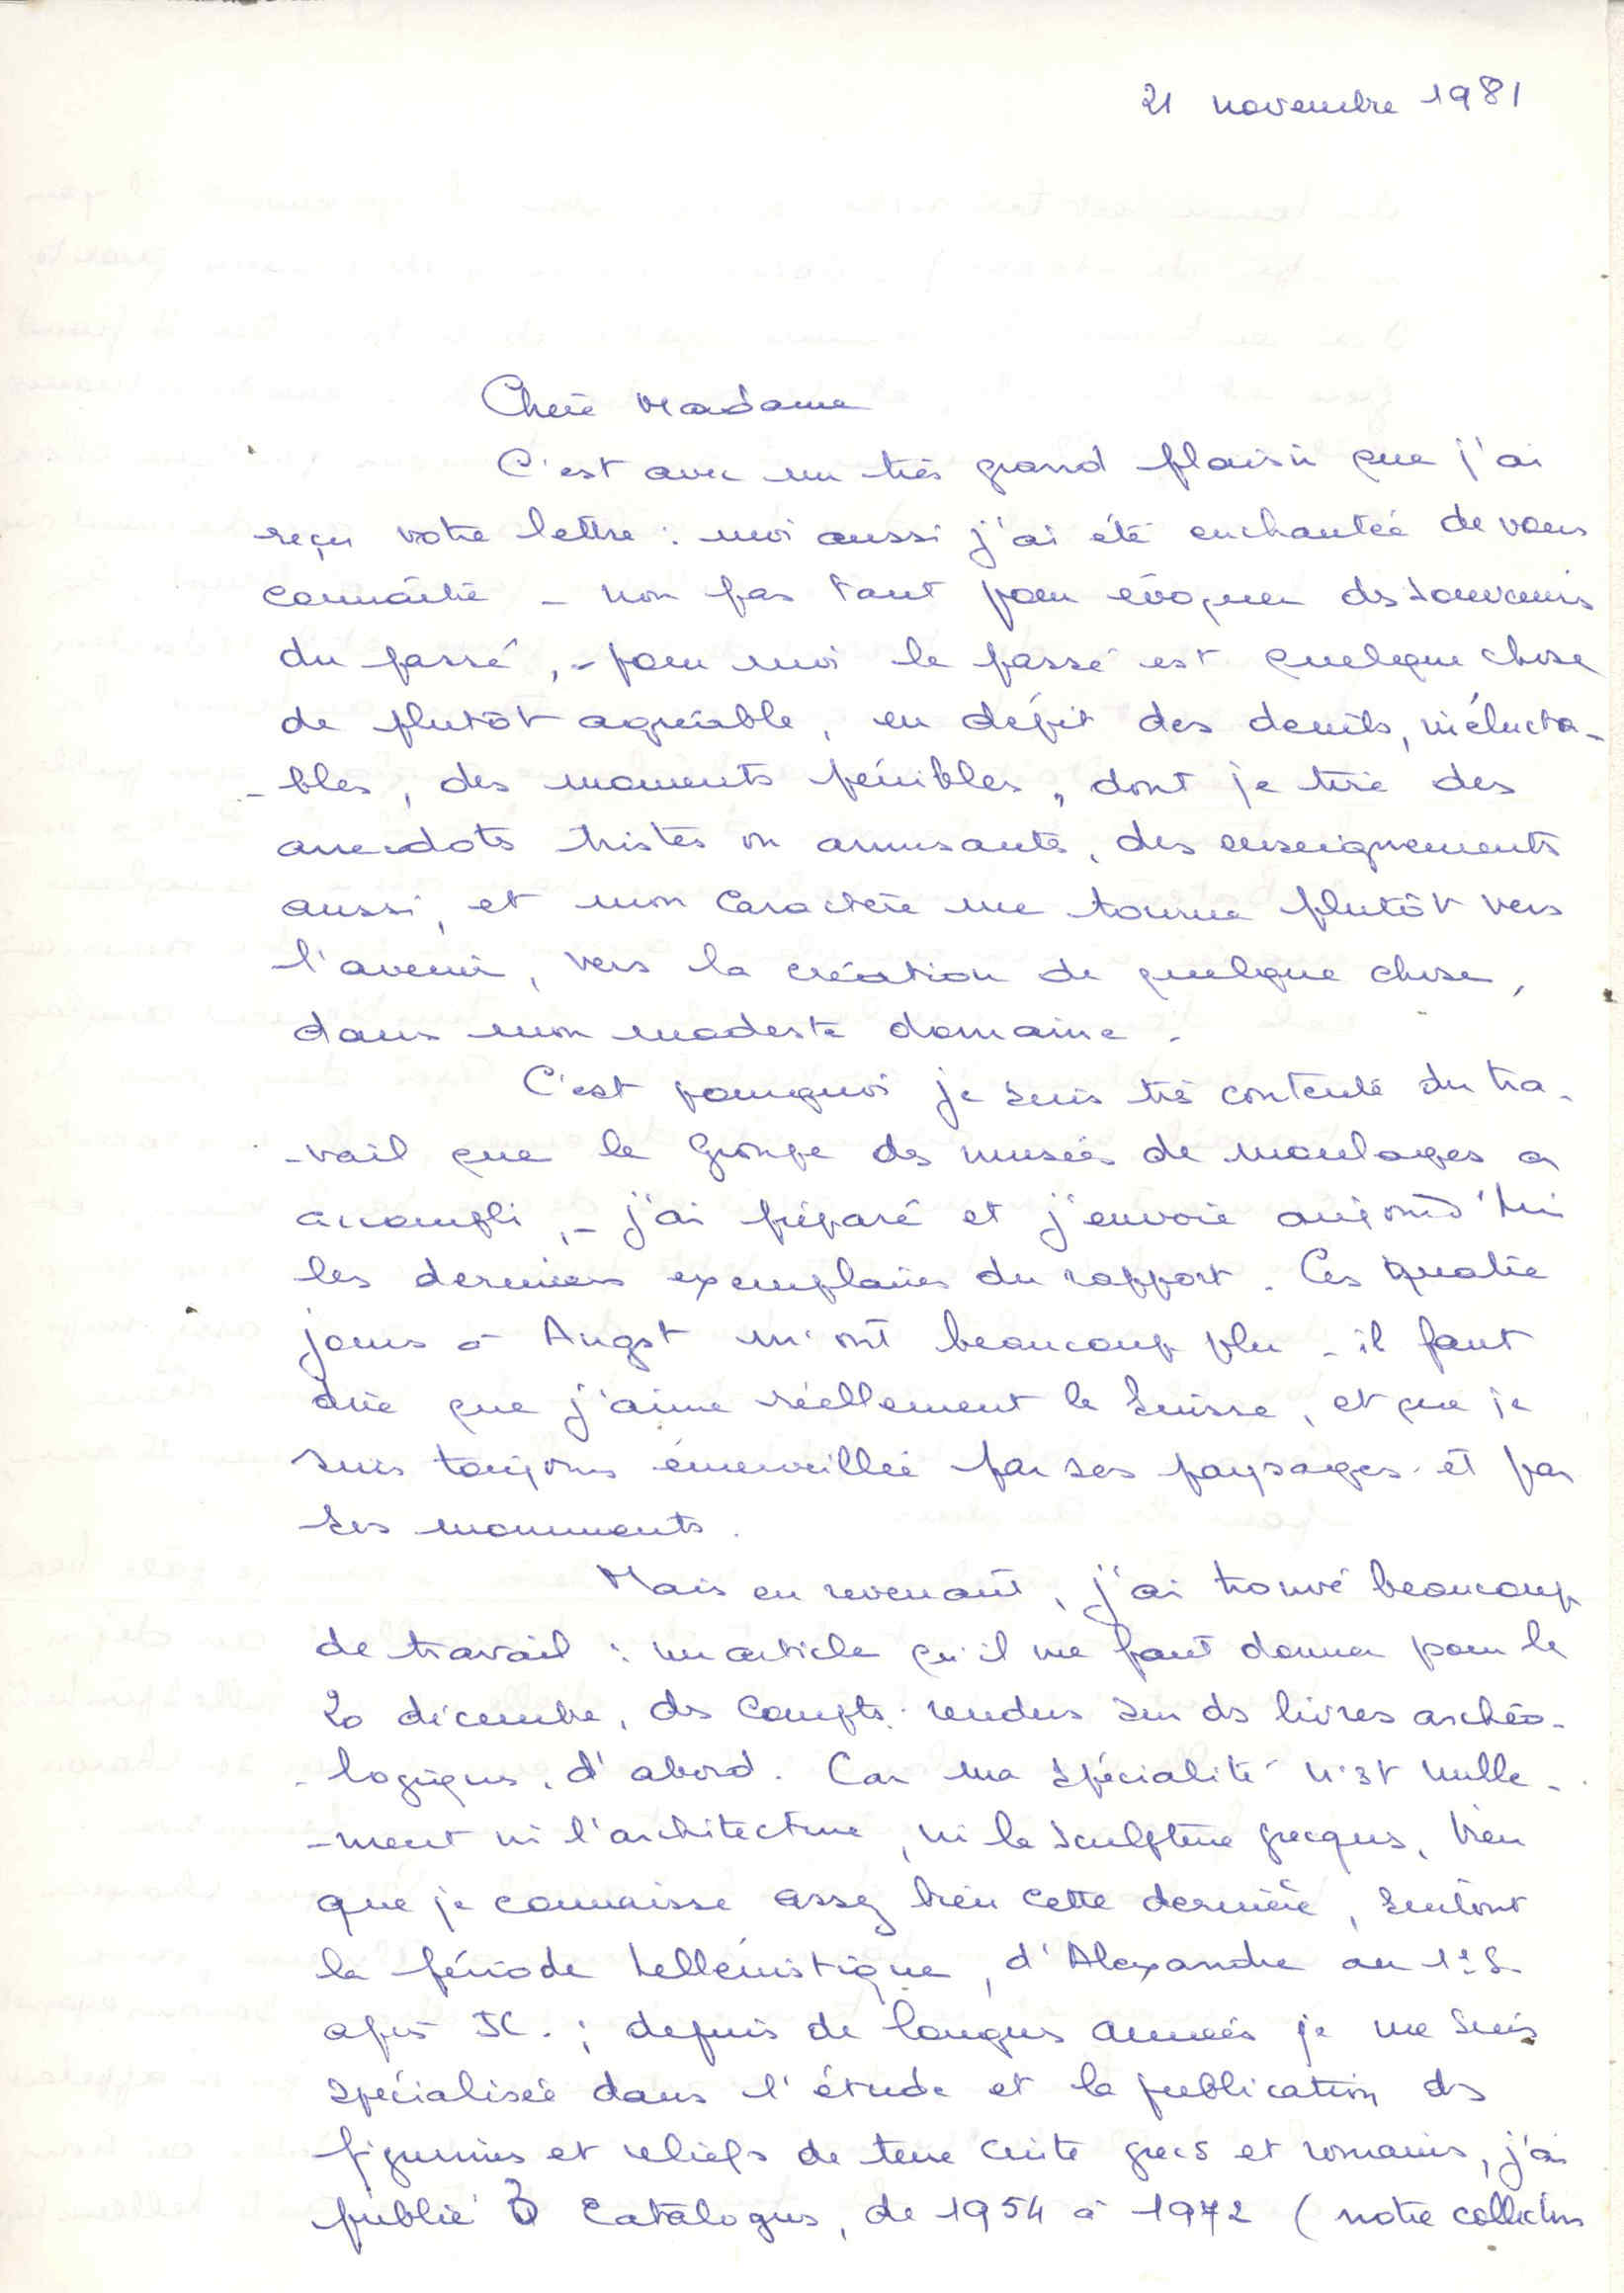 21 novembre 1981
Chère Madame
C'est avec un très grand plaisir que j'ai
reçu votre lettre : moi aussi j'ai été enchantée de vous
connaître - non pas tant pour évoquer des souvenirs
du passé, - pour moi le passé est quelque chose
de plutôt agréable, en dépit des deuils, inélucta-
-bles, des moments pénibles, dont je tire des
anecdotes tristes ou amusantes, des enseignements
aussi, et mon caractère me tourne plutôt vers
l'avenir, vers la création de quelque chose,
dans mon modeste domaine.
C'est pourquoi je suis très contente du tra-
-vail que le Groupe des musées de moulages a
accompli, - j'ai préparé et j'envoie aujourd'hui
les derniers exemplaires du rapport. Ces quatre
jours à Augst m'ont beaucoup plu - il faut
dire que j'aime réellement la Suisse, et que je
suis toujours émerveillée par ses paysages et par
ses monuments.
Mais en revenant, j'ai trouvé beaucoup
de travail : un article qu'il me faut donner pour le
20 décembre, des comptes-rendus sur des livres archéo-
-logiques, d'abord. Car ma spécialité n'est nulle-
-ment ni l'architecture, ni la sculpture grecques, bien
que je connaisse assez bien cette dernière, surtout
la période hellénistique, d'Alexandre au 1er s.
après JC. ; depuis de longues années je me suis
spécialisée dans l'étude et la publication des
figurines et reliefs de terre cuite grecs et romains, j'ai
publié 3 Catalogues, de 1954 à 1972 (notre collection